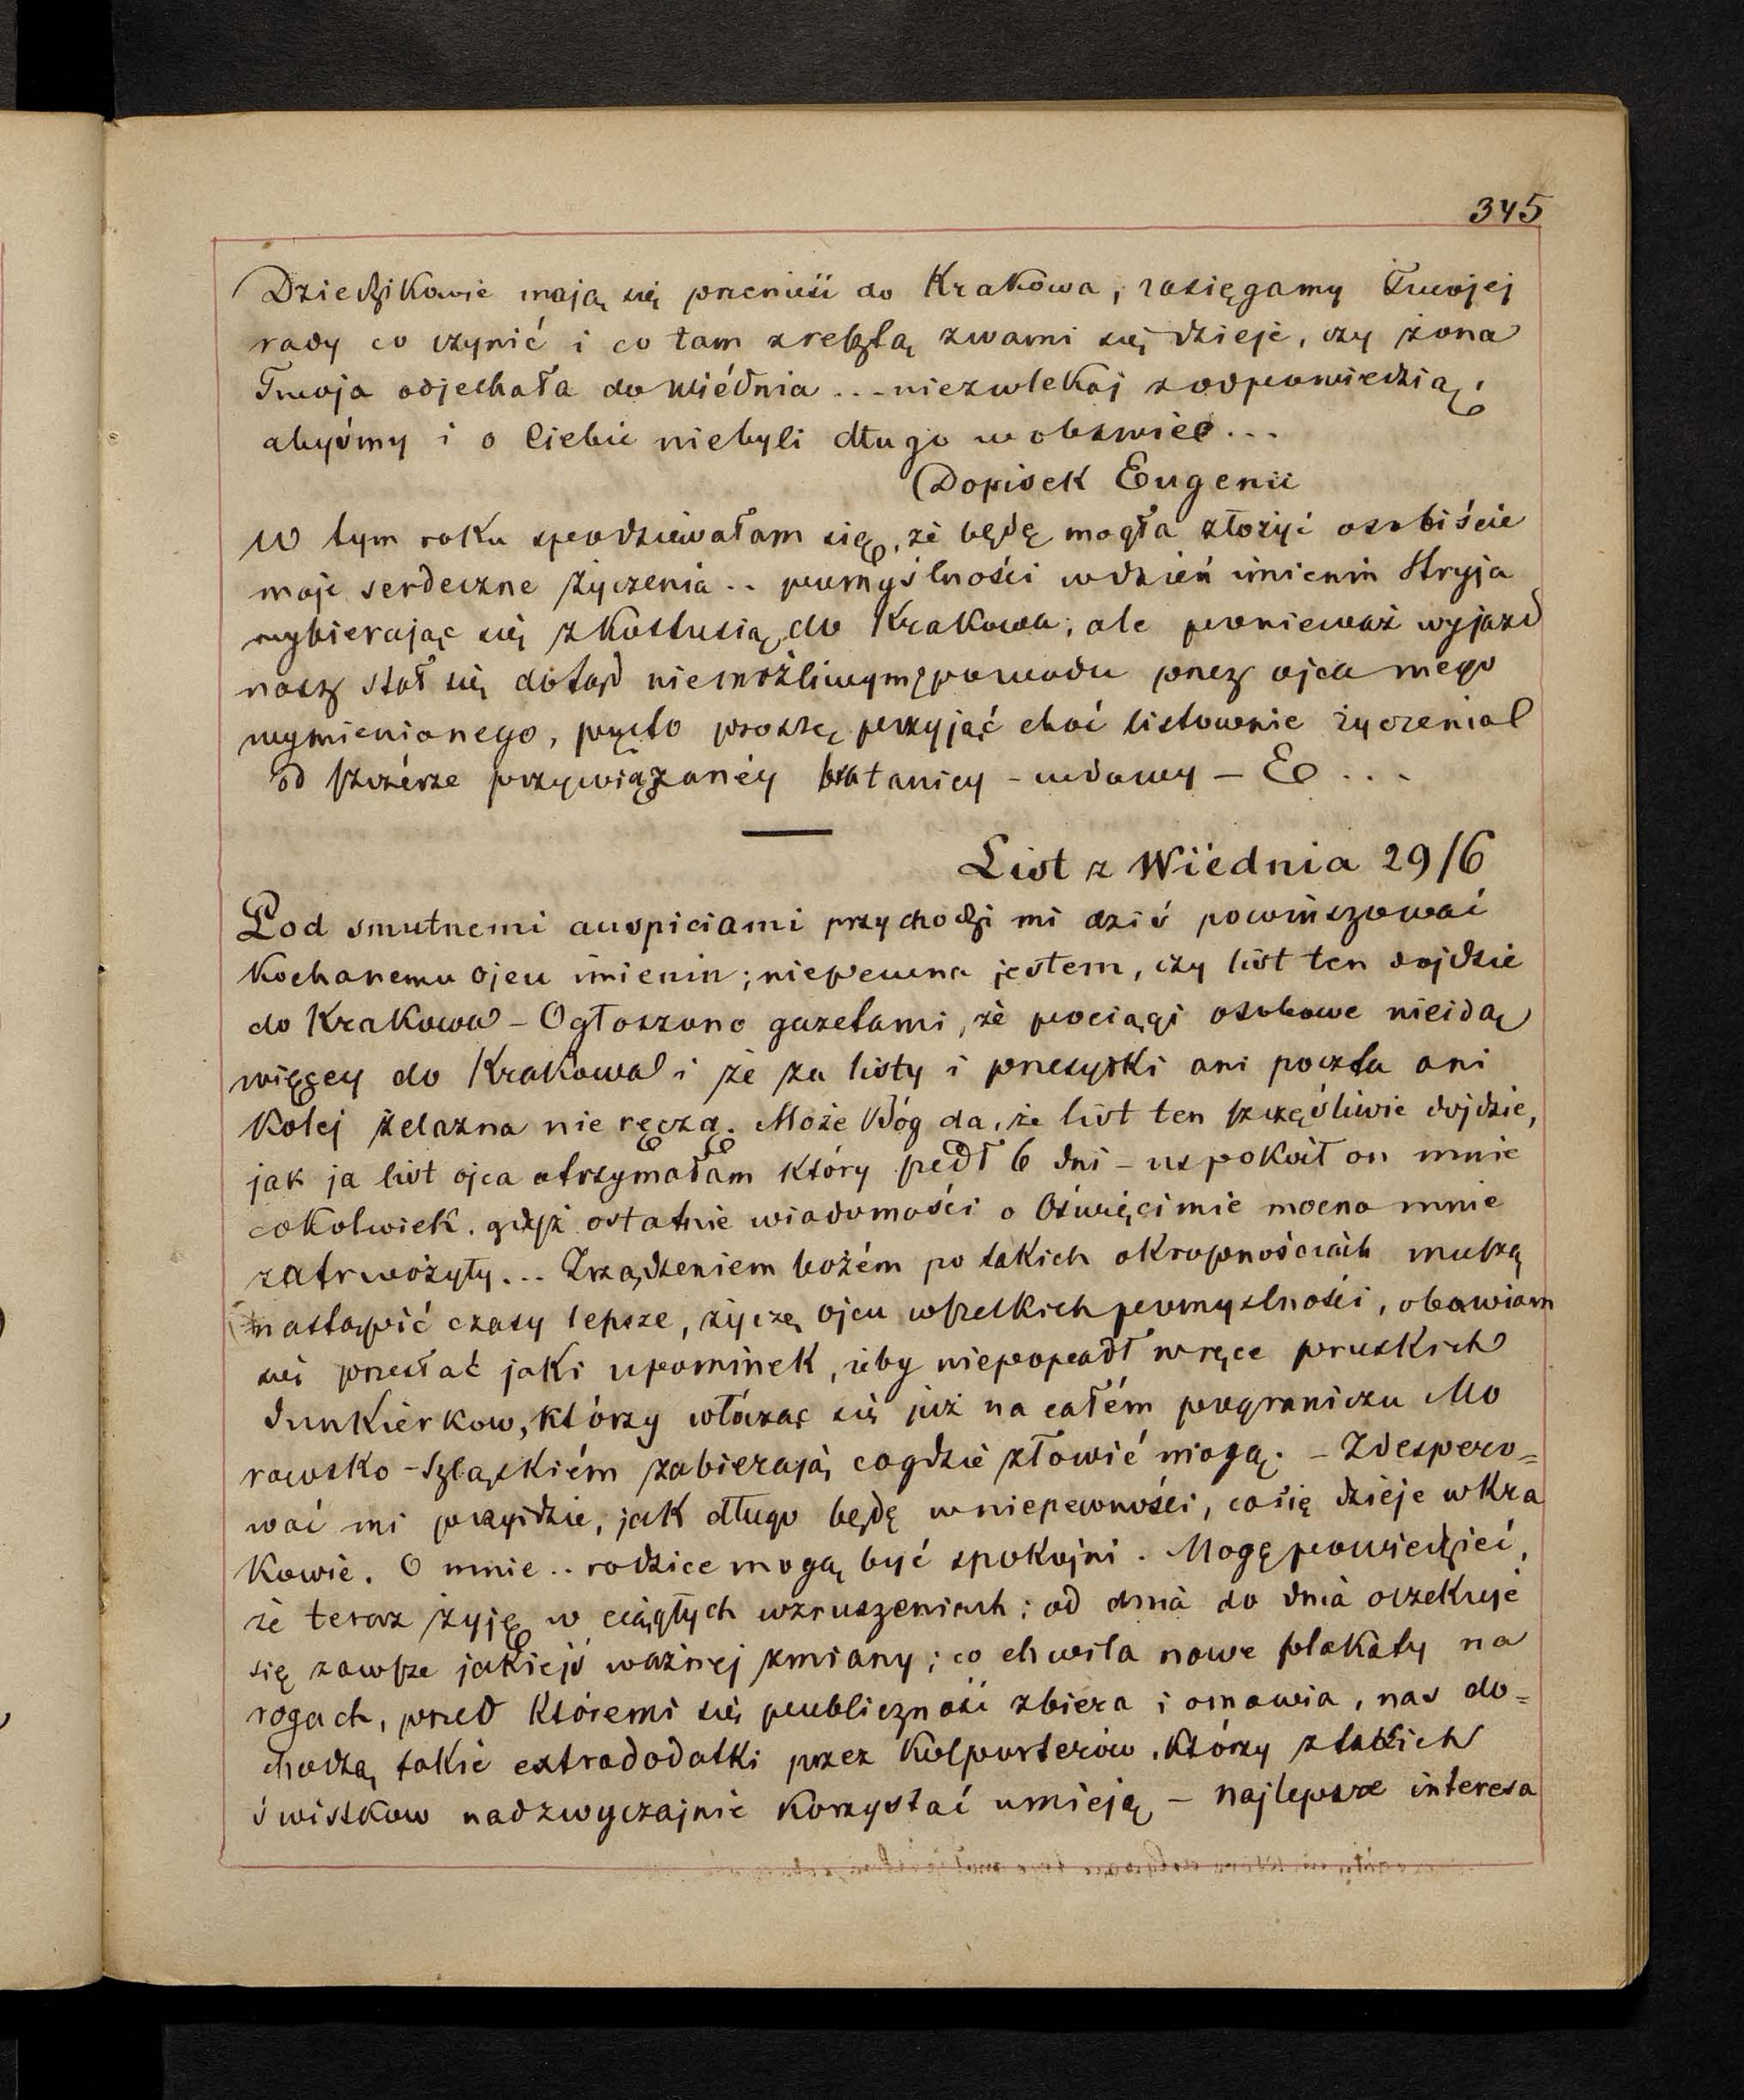 345
Dziedzikowie mają się przenieść do Krakowa, zasięgamy Twojej
rady co czynić i co tam zresztą zwami się dzieje, czy żona
Twoja odjechała do Wiédnia ... niezwlekaj zodpowiedzią,
abyśmy i o Ciebie niebyli długo w obawie...
Dopisek Eugenii
W tym roku spodziewałam się, że będę mogła złożyć osobiście
moje serdeczne życzenia .. pomyślności wdzień imienin Stryja
wybierając się zKostusią do Krakowa, ale ponieważ wyjazd
nasz stał się dotąd niemożliwym zpowodu przez ojca mego
wymienionego, przeto proszę przyjąć choć listownie życzenia
od szczérze przywiązanéy bratanicy - wdowy - E ...
List z Wiednia 29/6
Pod smutnemi auspiciami przychodzi mi dziś powinszować
Kochanemu ojcu imienin; niepewna jestem, czy list ten dojdzie
do Krakowa - Ogłoszono gazetami, że pociągi osobowe nieidą
więcey do Krakowa i że za listy i przesyłki ani poczta ani
Kolej żelazna nie ręczą. Może Bóg da, że list ten szczęśliwie dojdzie,
jak ja list ojca otrzymałam który szedł 6 dni - uspokoił on mnie
cokolwiek. gdyż ostatnie wiadomości o Oświęcimie mocno mnie
zatrwożyły... Zrządzeniem bożém po takich okropnościach muszą
nastąpić czasy lepsze, życzę ojcu wszelkich pomyslności, obawiam
się przesłać jaki upominek, żeby niepopadł wręce pruskich
Junkierkow, którzy włócząc się już na całém pograniczu Mo
rawsko-Szląskiém zabierają cogdzie złowić mogą. - Zdespero=
wać mi przyidzie, jak długo będę wniepewności, cosię dzieje wKra
kowie. O mnie .. rodzice mogą być spokojni. Mogę powiedzieć,
że teraz żyję w ciągłych wzruszeniach; od dnia do dnia oczekuje
się zawsze jakiejś ważnej zmiany; co chwila nowe plakaty na
rogach, przed któremi się publiczność zbiera i omawia, nas do=
chodzą takie extradodatki przez Kolporterów, którzy ztakich
świstkow nadzwyczajnie korzystać umieją - najlepsze interesa